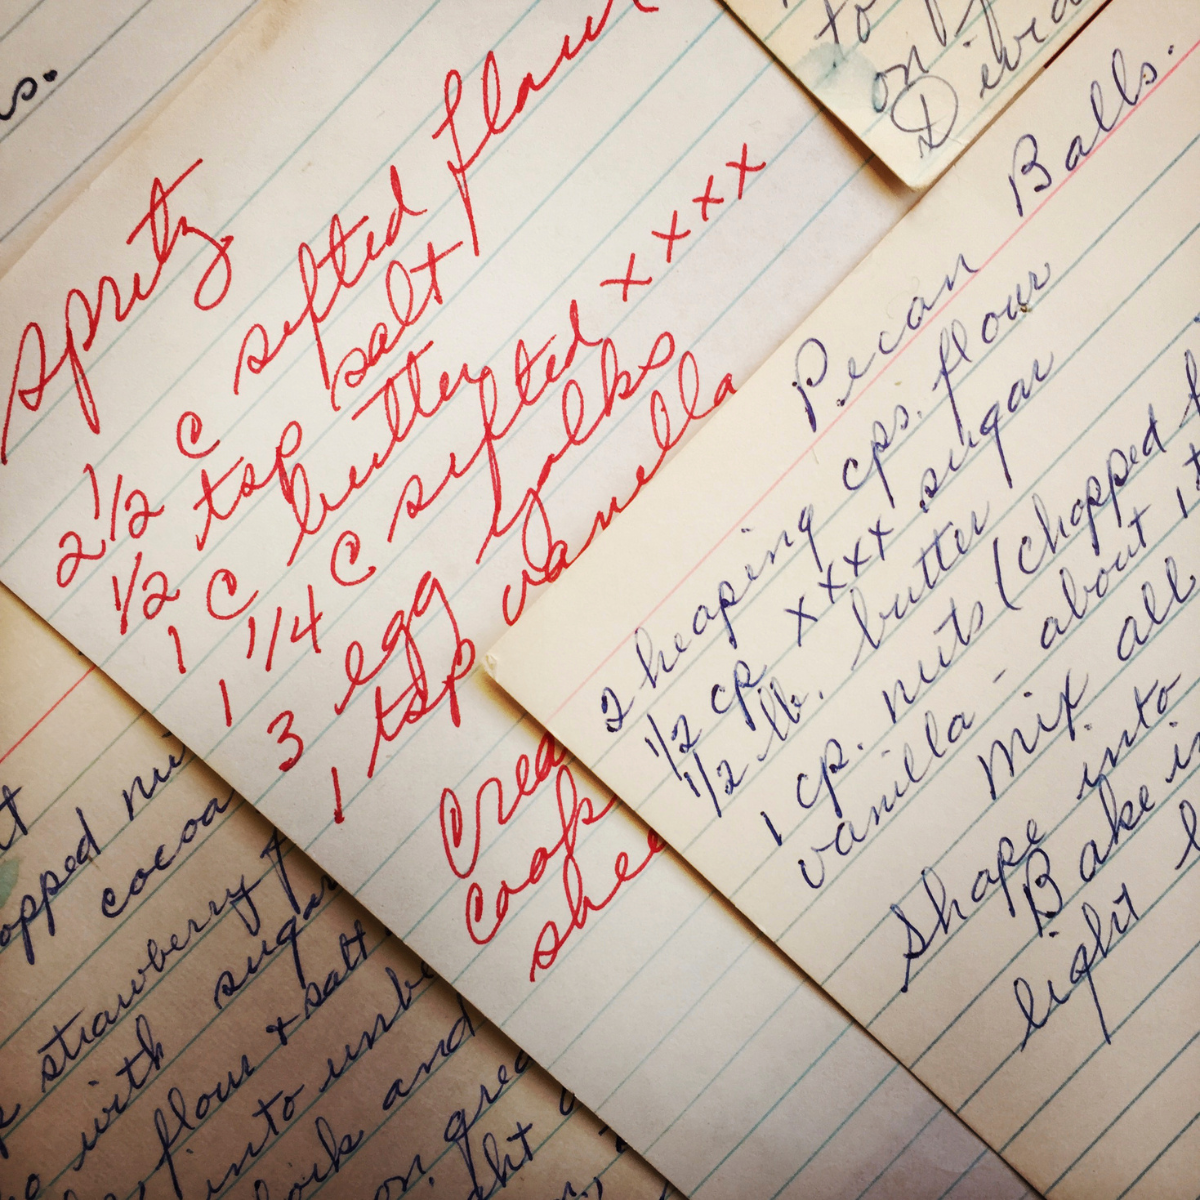 spritz
2 1/2 c sifted flour
1/2 tsp salt
1 c butter
1 1/4 c sifted xxxx
3 egg yolks
1 tsp vanella
Crea
cook
shee
Pecan Balls.
2 heaping cps. flour
1/2 cp xxxx sugar
1/2 lb. butter
1 cp. nuts (chopped f
vanilla - about 1 t
Mix all
Shape into
Bake in
light
to
on
Divid
s.
opped nut
cocoa
strawberry
with sugar
flour & salt
into
and
on grea
ht